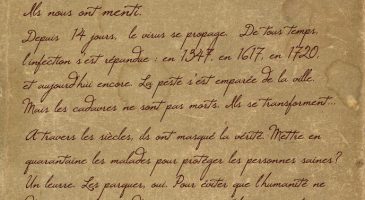 Ils nous ont menti.
Depuis 14 jours, le virus se propage. De tous temps,
l'infection s'est répandue : en 1347, en 1617, en 1720,
et aujourd'hui encore. La peste s'est emparée de la ville.
Mais les cadavres ne sont pas morts. Ils se transforment...
A travers les siècles, ils ont masqué la vérité. Mettre en
quarantaine les malades pour protéger les personnes saines?
Un leurre. Les parquer, oui. Pour éviter que l'humanité ne